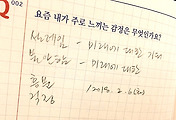 Q 002
요즘 내가 주로 느끼는 감정은 무엇인가요?
설레임 - 미래에 대한 기대
불안함 - 미래에 대한
흥분
걱정